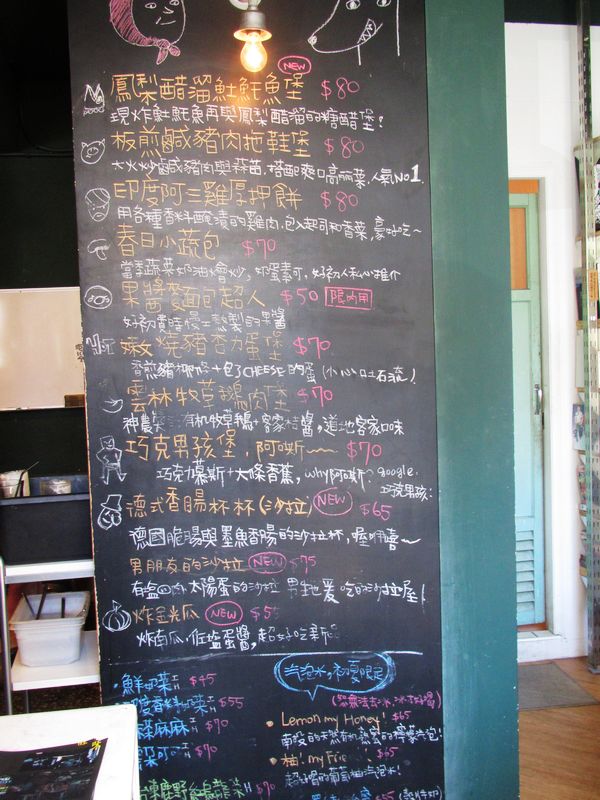 NEW
鳳梨醋溜魠魠魚堡 $80
現炸魠魠魚再與鳳梨醋溜的糖醋堡!
板煎鹹豬肉拖鞋堡 $80
大火炒鹹豬肉與蒜苗,搭配爽口高麗菜,人氣NO1.
印度阿三雞厚押餅 $80
用各種香料醃漬的雞肉,包入起司和香菜,豪好吃~
春日小蔬包 $70
當季蔬菜奶油燴炒,奶蛋素可,好初私心推介
果醬麵包超人 $50 限內用
好初費時慢工熬製的果醬
嫩燒豬香力蛋堡 $70
香煎豬柳 + 包了CHEESE的蛋(小心土石流)
雲林牧草鵝肉堡 $70
神農 有机牧草鵝+客家桔醬,道地客家口味
巧克男孩堡,阿嘶~~ $70
巧克力慕斯+大條香蕉, why阿嘶? google.
巧克男孩:
德式香腸杯杯(沙拉) NEW $65
德國脆腸與墨魚香腸的沙拉杯,喔嘻~
男朋友的沙拉 NEW $75
有 肉太陽蛋的沙拉 男生也愛吃的沙拉屋!
炸金光瓜 NEW $5
炸南瓜,佐鹽蛋醬,超好吃
汽泡水,初夏限定
鮮奶菜 $45
度香料奶菜 $55
麻麻 $70
可 $70
鹿野烏龍茶 $70
Lemon my Honey! $65
南投的 蜂蜜的檸檬汽泡!
柚! my $65
超好喝的葡萄柚汽泡水!
$65